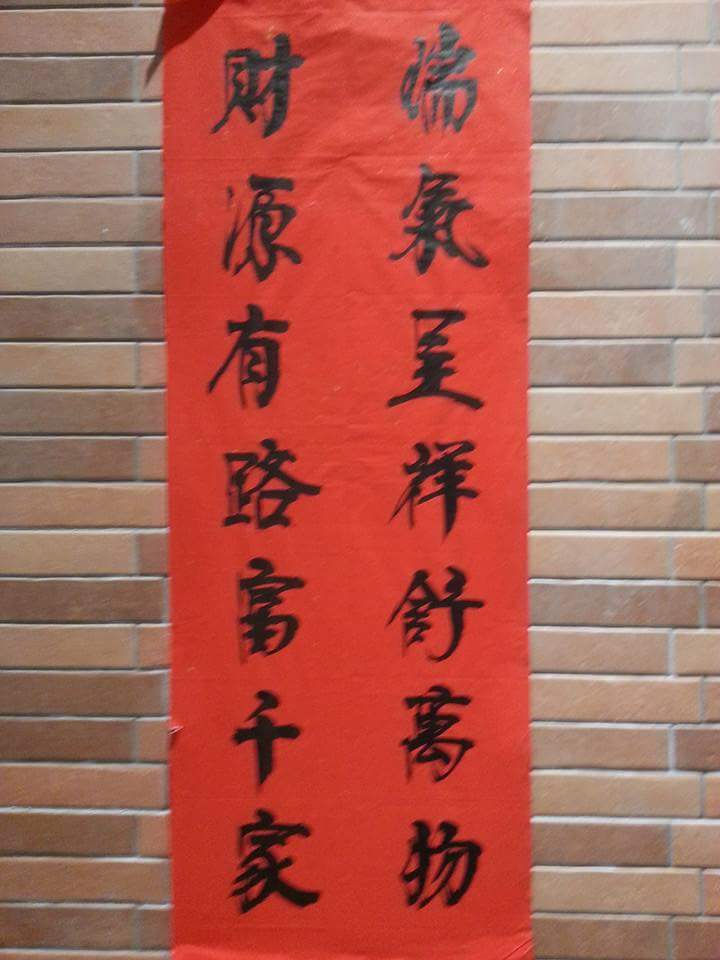 瑞氣呈祥舒萬物
財源有路富千家